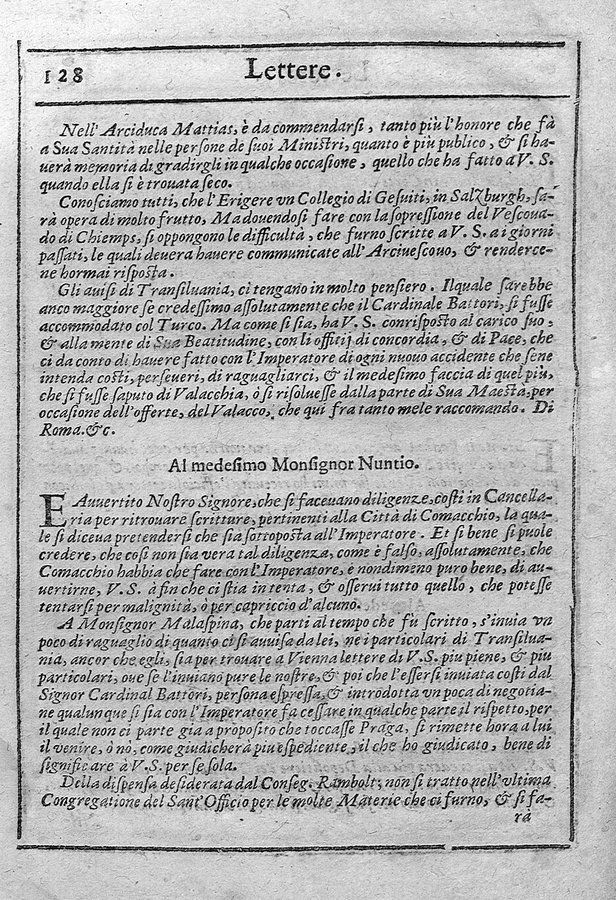 128
Lettere.
Nell'Arciduca Mattias, è da commendarsi, tanto più l'honore che fà
a Sua Santità nelle persone de suoi Ministri, quanto è più publico, & si ha-
uerà memoria di gradirgli in qualche occasione, quello che ha fatto a V. S.
quando ella si è trouata seco.
Conosciamo tutti, che l'Erigere vn Collegio di Gesuiti, in Salzburgh, sa-
rà opera di molto frutto, Ma douendosi fare con la sopressione del Vescoua-
do di Chiemps, si oppongono le difficultà, che furno scritte a V. S. a i giorni
passati, le quali deuera hauere communicate all'Arciuescouo, & renderce-
ne hormai risposta.
Gli auisi di Transiluania, ci tengano in molto pensiero. Ilquale sarebbe
anco maggiore se credessimo assolutamente che il Cardinale Battori, si fusse
accommodato col Turco. Ma come si sia, ha V. S. conrisposto al carico suo,
& alla mente di Sua Beatitudine, con li offitij di concordia, & di Pace, che
ci da conto di hauere fatto con l'Imperatore di ogni nuouo accidente che sene
intenda costì, perseueri, di raguagliarci, & il medesimo faccia di quel più,
che si fusse saputo di Valacchia, ò si risoluesse dalla parte di Sua Maestà, per
occasione dell'offerte, del Valacco, che qui fra tanto mele raccomando. Di
Roma. &c.
Al medesimo Monsignor Nuntio.
E Auuertito Nostro Signore, che si faceuano diligenze, costì in Cancella-
ria per ritrouare scritture, pertinenti alla Città di Comacchio, la qua-
le si diceua pretendersi che sia sottoposta all'Imperatore. Et si bene si puole
credere, che così non sia vera tal diligenza, come è falso, assolutamente, che
Comacchio habbia che fare con l'Imperatore, è nondimeno puro bene, di au-
uertirne, V. S. à fin che ci stia in tenta, & osserui tutto quello, che potesse
tentarsi per malignità, ò per capriccio d'alcuno.
A Monsignor Malaspina, che partì al tempo che fù scritto, s'inuia vn
poco di raguaglio di quanto ci si auuisa da lei, ne i particolari di Transilua-
nia, ancor che egli, sia per trouare a Vienna lettere di V. S. piu piene, & piu
particolari, oue se l'inuiano pure le nostre, & poi che l'essersi inuiata costì dal
Signor Cardinal Battori, persona espressa, & introdotta vn poca di negotia-
ne qualunque si sia con l'Imperatore fa cessare in qualche parte il rispetto, per
il quale non ci parte gia a proposito che toccasse Praga, si rimette hora a lui
il venire, ò nò, come giudicherà piu espediente, il che ho giudicato, bene di
significare à V. S. per se sola.
Della dispensa desiderata dal Conseg. Rambolt, non si tratto nell'vltima
Congregatione del Sant'Officio per le molte Materie che ci furno, & si fa-
rà